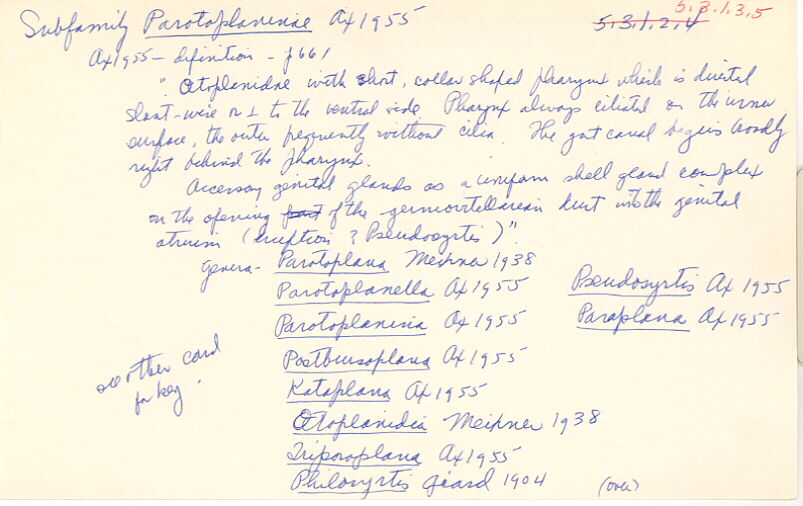 5.3.1.3.5
Subfamily Parotoplaninae Ax 1955 5.3.1.2.4
Ax 1955 - definition - p 661
"Otoplanidae with short, collar shaped pharynx which is directed
slant-wise or ⊥ to the ventral side. Pharynx always ciliated on the inner
surface, the outer frequently without cilia. The gut canal begins broadly
right behind the pharynx.
Accessory genital glands as a uniform shell gland complex
on the opening of the germovitellarian duct into the genital
atrium (exception ? Pseudosyrtis)".
genera - Parotoplana Meixner 1938
Parotoplanella Ax 1955 Pseudosyrtis Ax 1955
Parotoplanina Ax 1955 Paraplana Ax 1955
Postbursoplana Ax 1955
see other card
for key.
Kataplana Ax 1955
Otoplanidia Meixner 1938
Triporoplana Ax 1955
Philosyrtis Giard 1904 (over)